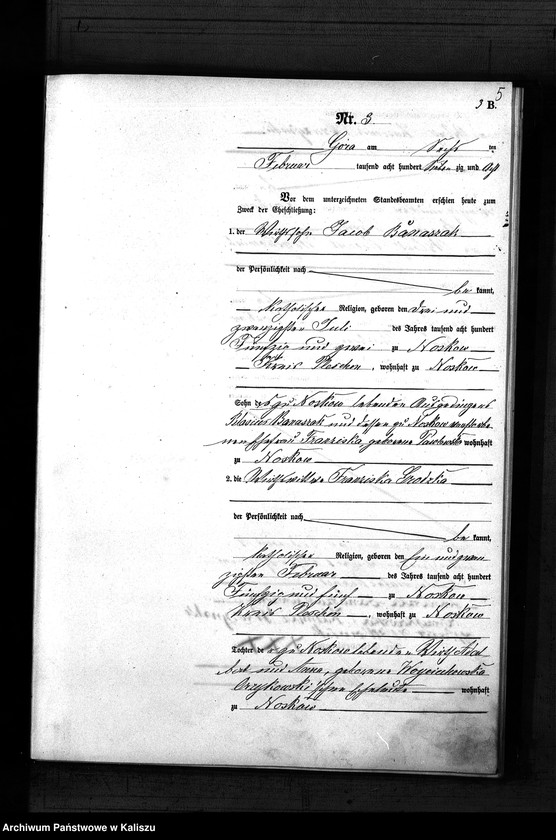 5
3 B.
Nr. 3
Góra am Sechsten
Februar tausend acht hundert sieben zig und Acht
Vor dem unterzeichneten Standesbeamten erschien heute zum
Zweck der Eheschließung:
1. der Wirthssohn Jacob Banaszak
der Persönlichkeit nach
bekannt,
katholischer Religion, geboren den drei und
zwanzigsten Juli des Jahres tausend acht hundert
Fünfzig und zwei zu Noskow
Kreis Pleschen, wohnhaft zu Noskow
Sohn des zu Noskow lebenden Ausgedingers
Blasius Banaszak und dessen zu Noskow verstorbe-
nen Ehefrau Franziska geborene wohnhaft
zu Noskow
2. die Franziska
der Persönlichkeit nach
bekannt,
katholischer Religion, geboren den Ein und zwan
zigsten Februar des Jahres tausend acht hundert
Fünfzig und fünf zu Noskow
Kreis Pleschen, wohnhaft zu Noskow
Tochter der zu Noskow lebenden Wirth Adal
bert und Anna, geborene Wojciechowska
schen Eheleute wohnhaft
zu Noskow
Archiwum Państwowe w Kaliszu